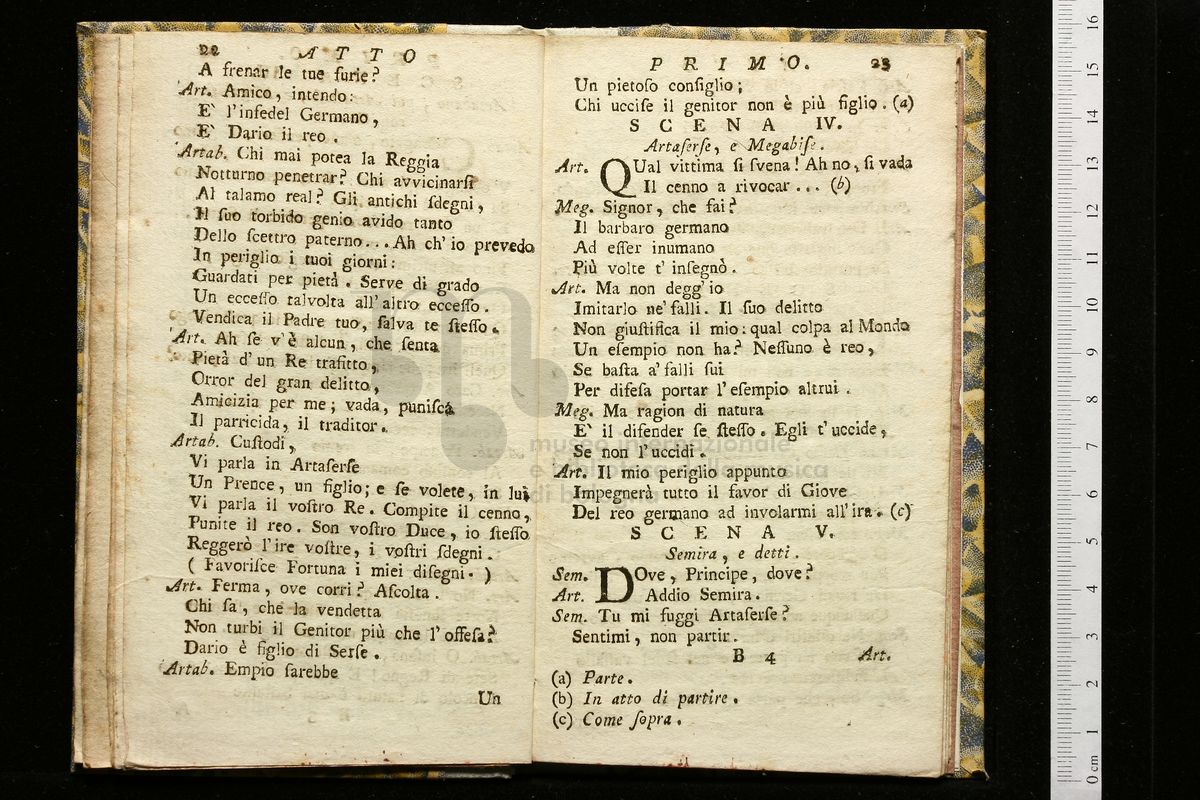 22 A T T O
A frenar le tue furie?
Art. Amico, intendo:
E' l'infedel Germano,
E' Dario il reo.
Artab. Chi mai potea la Reggia
Notturno penetrar? Chi avvicinarſi
Al talamo real? Gli antichi ſdegni,
Il ſuo torbido genio avido tanto
Dello ſcettro paterno... Ah ch' io prevedo
In periglio i tuoi giorni:
Guardati per pietà. Serve di grado
Un ecceſſo talvolta all' altro ecceſſo.
Vendica il Padre tuo, ſalva te ſteſſo.
Art. Ah ſe v'è alcun, che ſenta
Pietà d' un Re trafitto,
Orror del gran delitto,
Amicizia per me; vada, puniſca
Il parricida, il traditor.
Artab. Cuſtodi,
Vi parla in Artaſerſe
Un Prence, un figlio; e ſe volete, in lui
Vi parla il voſtro Re. Compite il cenno,
Punite il reo. Son voſtro Duce, io ſteſſo
Reggerò l'ire voſtre, i voſtri ſdegni.
( Favoriſce Fortuna i miei diſegni. )
Art. Ferma, ove corri? Aſcolta.
Chi ſa, che la vendetta
Non turbi il Genitor più che l' offeſa?
Dario è figlio di Serſe.
Artab. Empio ſarebbe
Un
P R I M O. 23
Un pietoſo conſiglio;
Chi ucciſe il genitor non è più figlio. (a)
S C E N A IV.
Artaſerſe, e Megabiſe.
Art. QUal vittima ſi ſvena! Ah no, ſi vada
Il cenno a rivocar ... (b)
Meg. Signor, che fai?
Il barbaro germano
Ad eſſer inumano
Più volte t' inſegnò.
Art. Ma non degg' io
Imitarlo ne' falli. Il ſuo delitto
Non giuſtifica il mio: qual colpa al Mondo
Un eſempio non ha? Neſſuno è reo,
Se baſta a' falli ſui
Per difeſa portar l' eſempio altrui.
Meg. Ma ragion di natura
E' il difender ſe ſteſſo. Egli t' uccide,
Se non l' uccidi.
Art. Il mio periglio appunto
Impegnerà tutto il favor di Giove
Del reo germano ad involarmi all' ira. (c)
S C E N A V.
Semira, e detti.
Sem. DOve, Principe, dove?
Art. Addio Semira.
Sem. Tu mi fuggi Artaſerſe?
Sentimi, non partir.
B 4 Art.
(a) Parte.
(b) In atto di partire.
(c) Come ſopra.
museo internazionale
e biblioteca della musica
di bologna
0 cm 1 2 3 4 5 6 7 8 9 10 11 12 13 14 15 16